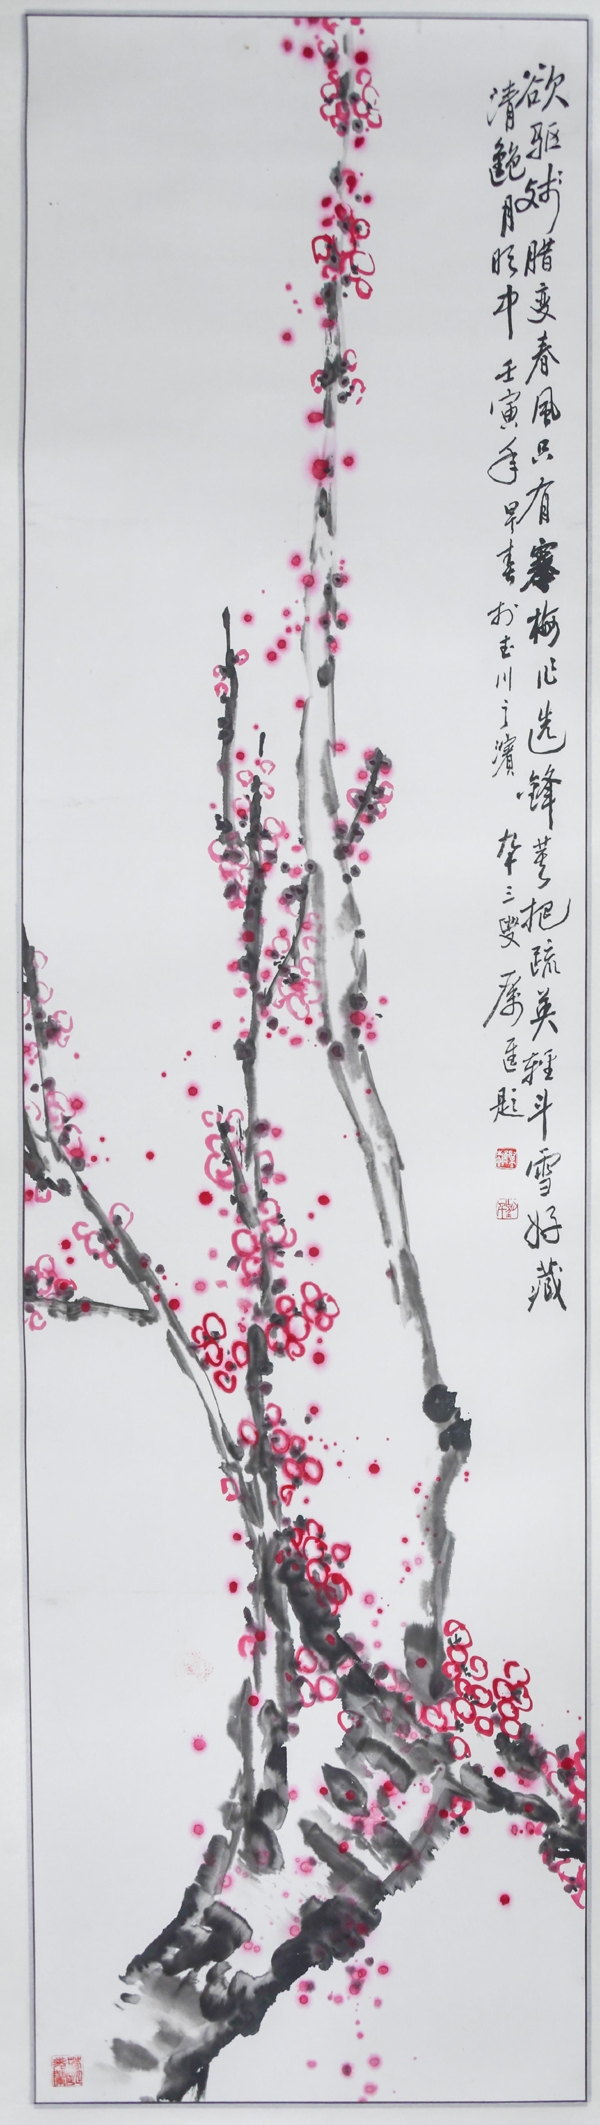 欲驱残腊变春风只有寒梅作选锋莫把疏英轻斗雪好藏
清艳月明中 壬寅年早春於玉川之滨 卒三叟 厉匡题